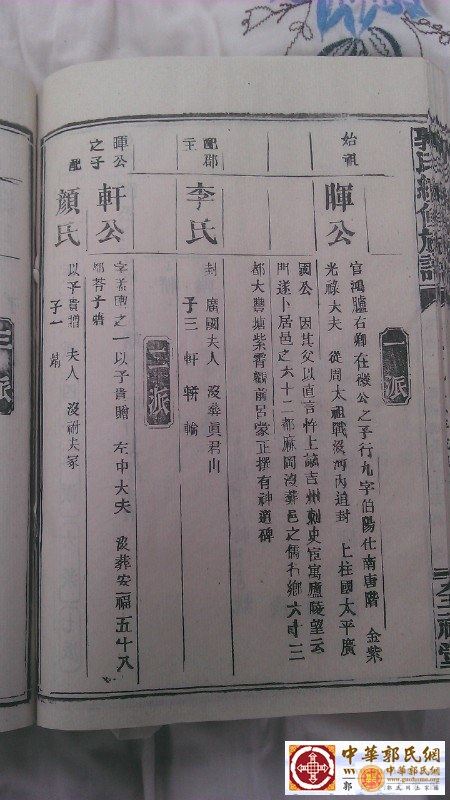 郭氏續修族譜
一派
始祖
暉公
官鴻臚右卿在徽公之子行九字伯陽仕南唐階 金紫
光祿大夫 從周太祖戰沒河內追封 上柱國太平廣
國公 因其父以直言忤上謫吉州刺史宦寓廬陵望云
門遂卜居邑之六十二都麻岡沒葬邑之儒行鄉六十三
都大豐塘紫霄觀前呂蒙正撰有神道碑
配郡
主
李氏
封 廣國夫人 沒葬真君山
子三 軒 輧 輪
二派
暉公
之子
軒公
字 之一以子貴贈 左中大夫 沒葬安福五十八
都 子 
配
顏氏
以子貴贈 夫人 沒祔夫冢
子一
三派
中華郭氏網
郭
www.guoshiwang.org
郭氏網法家